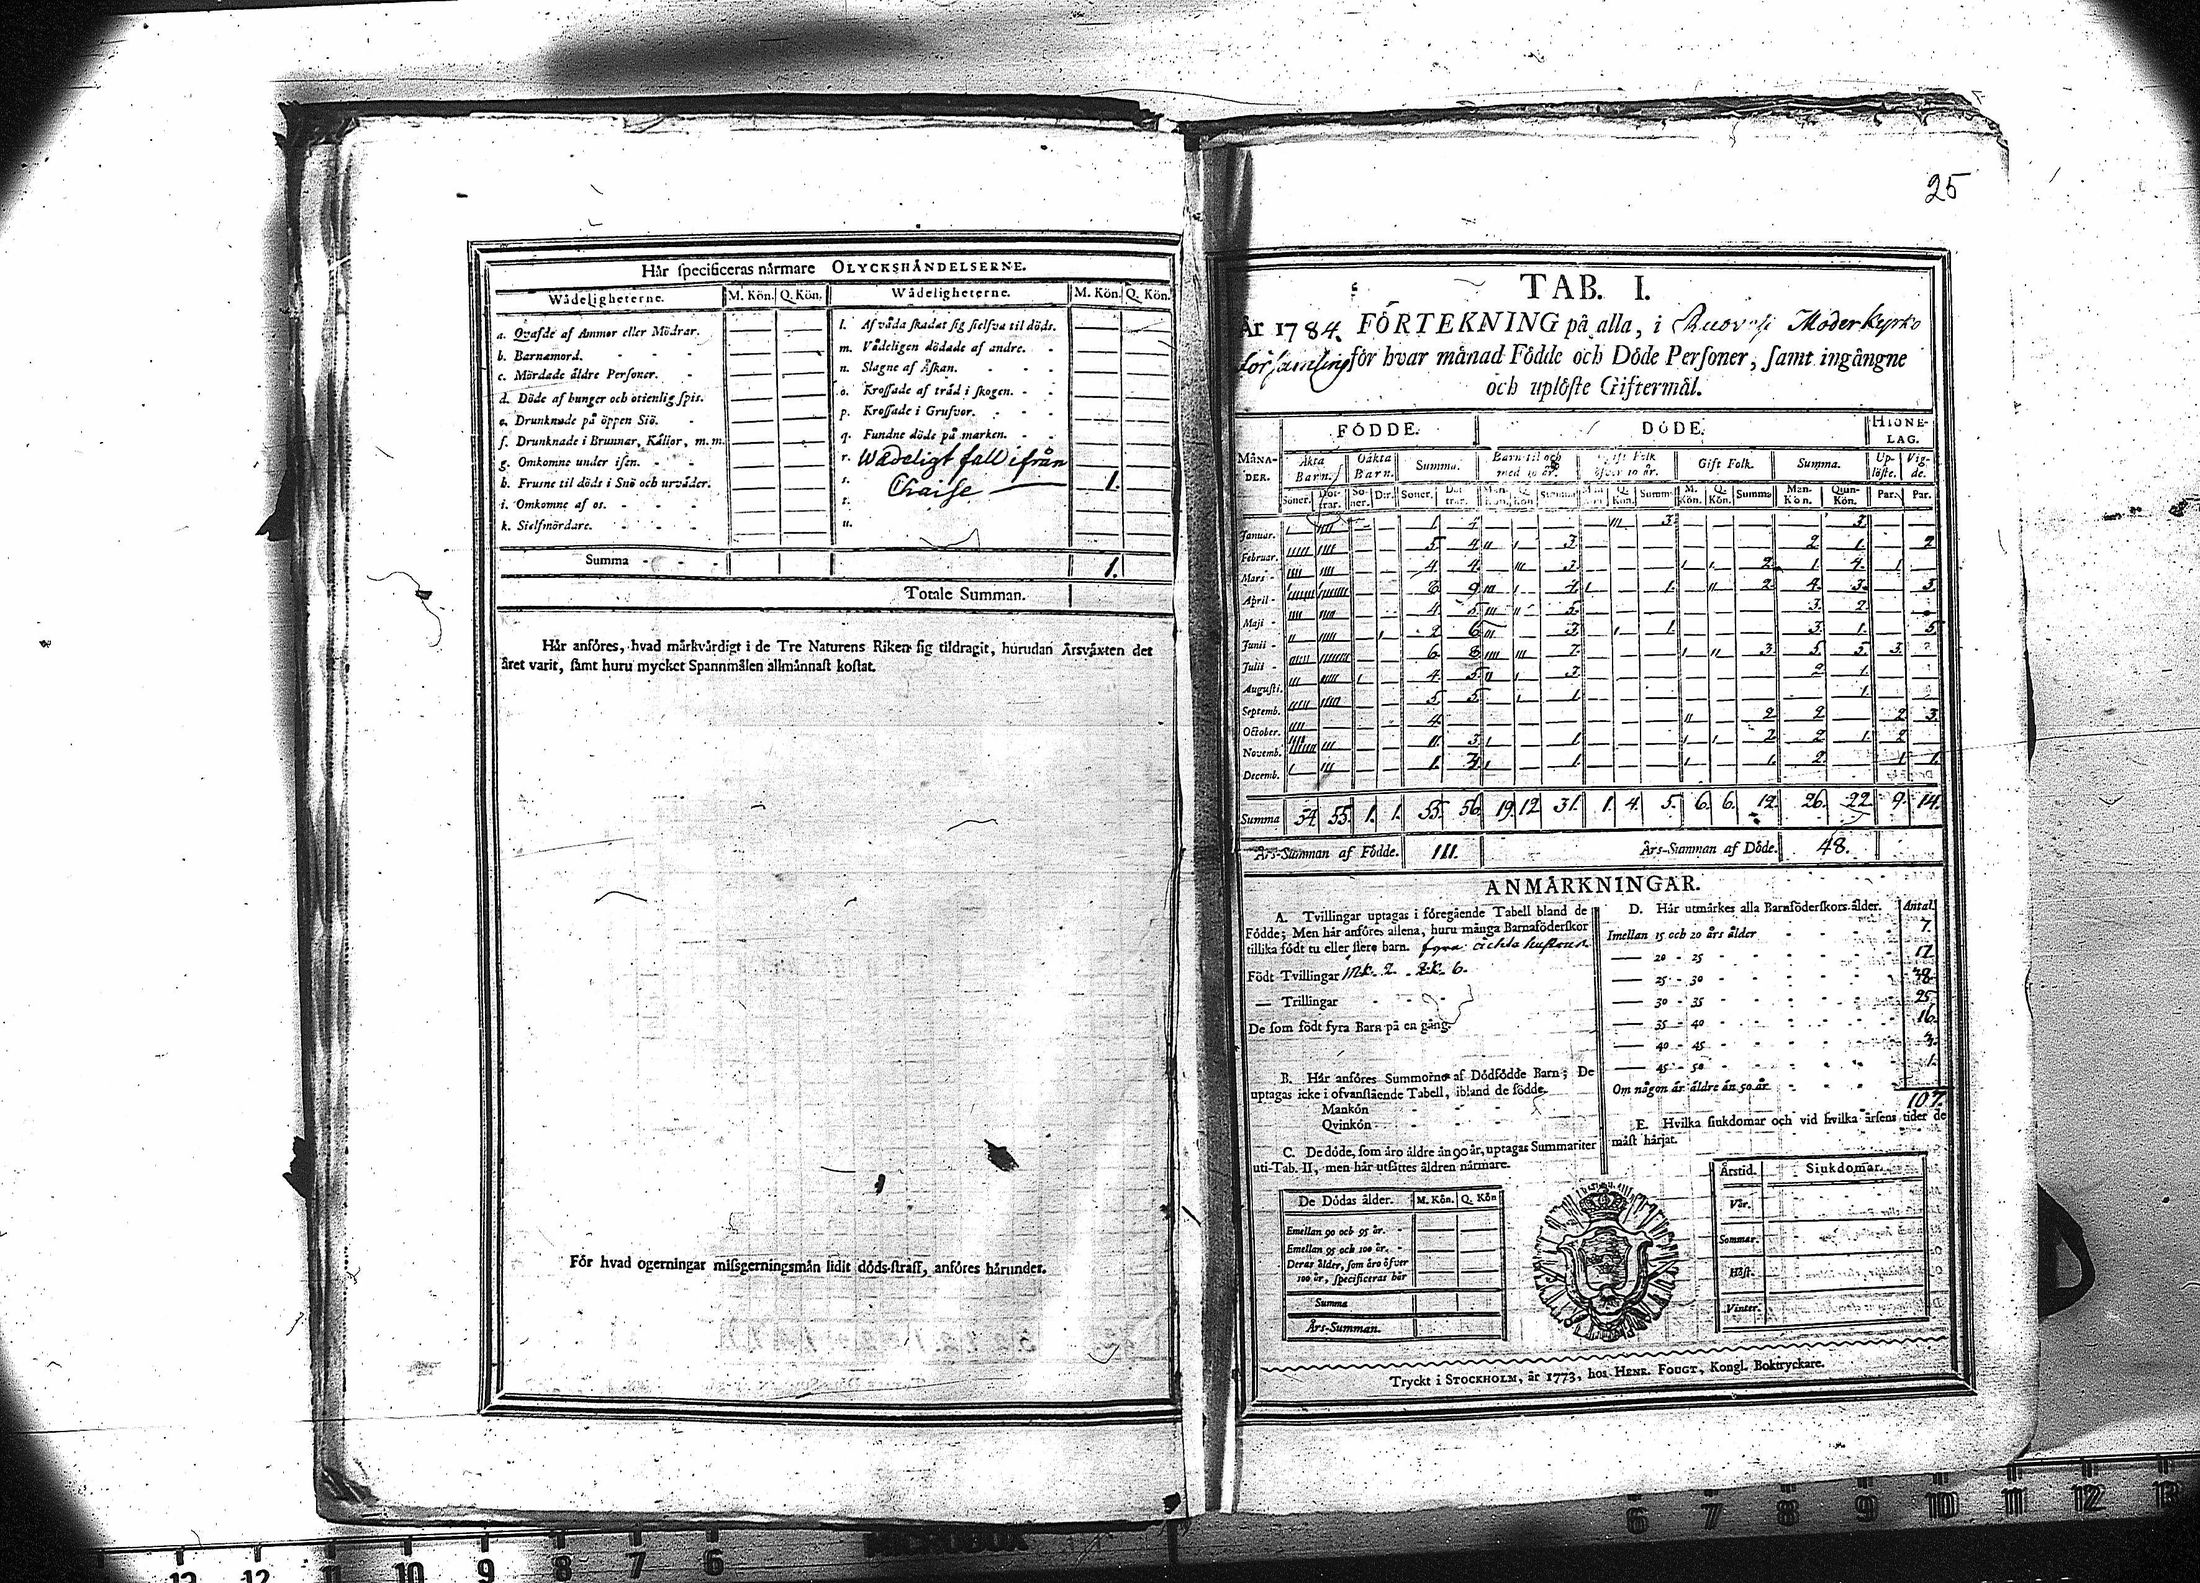 Hår specificeras nårmare OLYCKSHÅNDELSERNE.
Wådeligheterne. M. Kön. Q. Kön. Wådeligheterne. M. Kön. Q. Kön.
a. Qvafde af Ammor eller Mödrar.
b. Barnamord.
c. Mördade åldre Personer.
d. Döde af hunger och otienlig spis.
e. Drunknade på öppen Siö.
f. Drunknade i Brunnar, Källor, m.m.
g. Omkomne under isen.
h. Frusne til döds i Snö och urväder.
i. Omkomne af os.
k. Sielfmördare.
l. Af våda skadat sig sielfva til döds.
m. Vådeligen dödade af andre.
n. Slagne af Åskan.
o. Krossade af tråd i skogen.
p. Krossade i Grufvor.
q. Fundne döde på marken.
r. Wådeligt fall ifrån
s. Chaise 1.
t.
u.
Summa 1.
Totale Summan.
Hår anföres, hvad mårkvårdigt i de Tre Naturens Riken sig tildragit, hurudan Årsvåxten det
året varit, samt huru mycket Spannmålen allmånnast kostat.
För hvad ogerningar missgerningsmån lidit döds-straff, anföres hårunder.
25
TAB. I.
År 1784. FÖRTEKNING på alla, i Ruovesi Moderkyrko
församling för hvar månad Födde och Döde Personer, samt ingångne
och uplöste Giftermål.
MÅNADER. FÖDDE. DÖDE. HIONELAG.
Äkta Barn. Oäkta Barn. Summa. Barn til och med 10 år. Ogift Folk öfver 10 år. Gift Folk. Summa. Uplöste. Vigde.
Januar. 1. 4. 3. 3.
Februar. 5. 4. 3. 2. 1. 2
Mars 4 4. 3. 2. 1. 4. 1
April 6 9 4. 1. 2 4. 3. 3.
Maji 4 5 5. 3. 2.
Junii 2 6 3. 1. 3. 1. 5
Julii 6 8 7. 3 5 5. 3.
Augusti. 4. 5 3. 2 1.
Septemb. 5. 5. 1. 1.
October. 4. 2 2 2 3.
Novemb. 11. 3 1. 2 2 1. 2
Decemb. 1. 3. 1. 1. 2. 1 1.
Summa 54 55. 1. 1. 55. 56 19. 12 31. 1. 4. 5. 6. 6. 12 26. 22. 9. 14.
Års-Summan af Födde. 111. Års-Summan af Döde. 48.
ANMÄRKNINGAR.
A. Tvillingar uptagas i föregående Tabell bland de
Födde; Men hår anföres allena, huru många Barnaföderskor
tillika födt tu eller flere barn. fyra äckta hustrur
Födt Tvillingar mk. 2. qk. 6.
— Trillingar
De som födt fyra Barn på en gång.
B. Hår anföres Summorne af Dödfödde Barn; De
uptagas icke i ofvanstående Tabell, ibland de födde.
Mankön
Qvinkön
C. De döde, som äro åldre än 90 år, uptagas Summariter
uti Tab. II, men hår utsåttes åldren nårmare.
De Dödas ålder. M. Kön. Q. Kön
Emellan 90 och 95 år.
Emellan 95 och 100 år.
Deras ålder, som åro öfver
100 år, specificeras hår
Summa
Års-Summan.
D. Hår utmårkes alla Barnföderskors ålder. Antal
Imellan 15 och 20 års ålder 7.
— 20 - 25 17
— 25 - 30 38
— 30 - 35 25
— 35 - 40 16
— 40 - 45 3.
— 45 - 50 1.
Om någon är äldre ån 50 år
107.
E. Hvilka siukdomar och vid hvilka årsens tider de
måst hårjat.
Årstid. Siukdomar.
Vår.
Sommar.
Höst.
Vinter.
Tryckt i STOCKHOLM, år 1773, hos HENR. FOUGT, Kongl. Boktryckare.
13 12 11 10 9 8 7 6
6 7 8 9 10 11 12 13